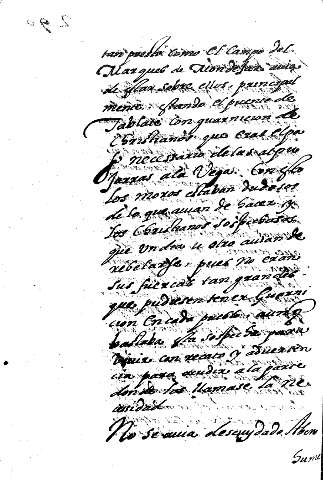 tan presto como el Campo del
Marques de Mondejar auia
de estar sobre ellos, principal
mente, estando el puente de
Tablate con guarnicion de
Christianos, que era el paso
necessario de las alpu
jarras a la Vega. Con esto
los moros estaban dudosos
de lo que auian de hacer, y
los Christianos sospechosos
que un dia u otro auian de
rebelarse, pues no eran
sus fuerças tan grandes
que pudiesen tener Guarni
cion en cada pueblo, aunq
bastaba la sospecha para
viuir con recato y aduerten
cia para acudir a la parte
donde los llamase la ne
cesidad
No se auia descuydado Aben
hume